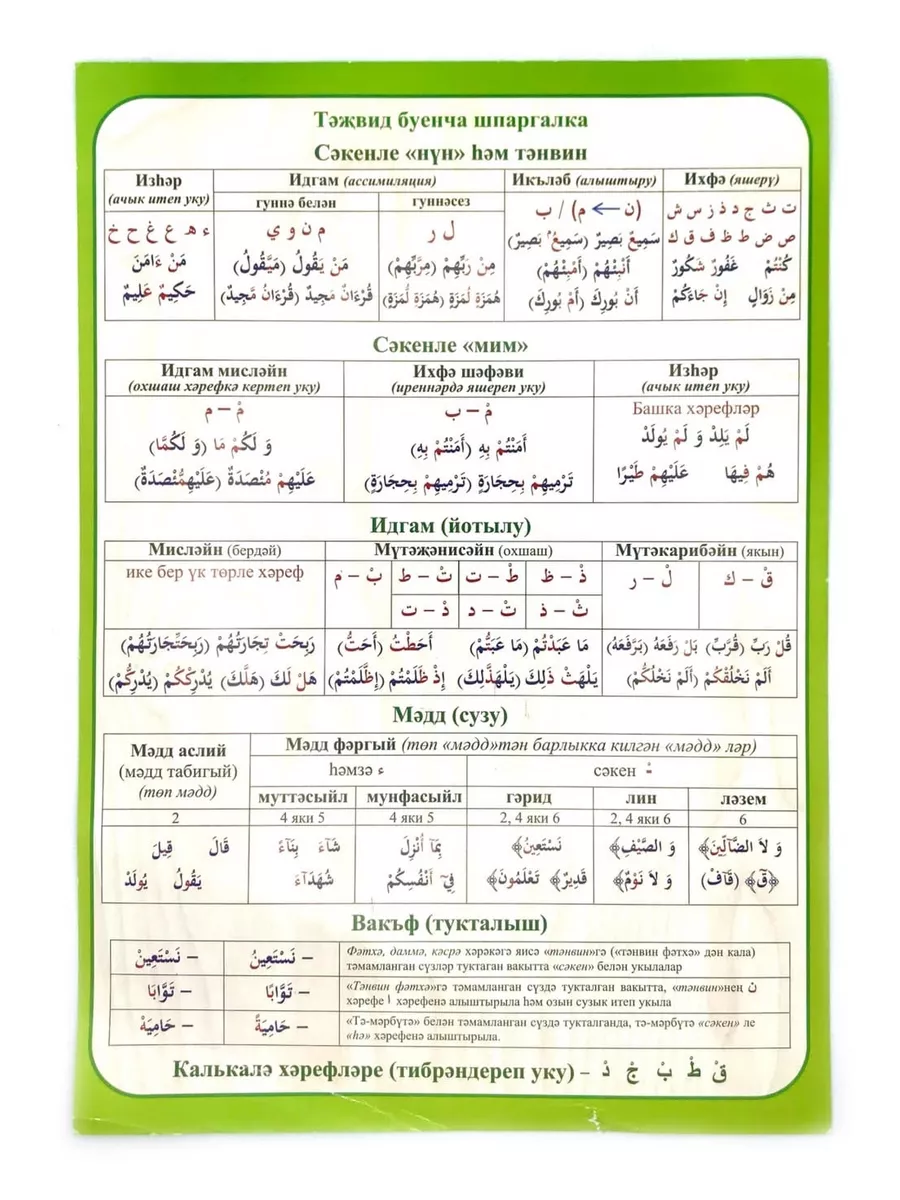 Тәҗвид буенча шпаргалка
Сәкенле «нүн» һәм тәнвин
Изһәр
(ачык итеп уку)
Идгам (ассимиляция)
гуннә белән
гуннәсез
Икъләб (алыштыру)
Ихфә (яшерү)
ء ھ ع غ ح خ
مَنْ ءَامَنَ
حَكِيمٌ عَلِيمٌ
م ن و ي
مَنْ يَقُولُ (مَيَّقُولُ)
قُرْءَانٌ مَجِيدٌ (قُرْءَانُ مَّجِيدٌ)
ل ر
مِنْ رَبِّهِمْ (مِرَّبِّهِمْ)
هُمَزَةٍ لُمَزَةٍ (هُمَزَةِ لُّمَزَةٍ)
(ن ← م) / ب
سَمِيعٌ بَصِيرٌ (سَمِيعُ ۢ بَصِيرٌ)
أَنْبِئْهُمْ (أَمْبِئْهُمْ)
أَنْ بُورِكَ (أَمْ بُورِكَ)
ت ث ج د ذ ز س ش
ص ض ط ظ ف ق ك
كُنْتُمْ غَفُورٌ شَكُورٌ
مِنْ زَوَالٍ إِنْ جَاءَكُمْ
Сәкенле «мим»
Идгам мисләйн
(охшаш хәрефкә кертеп уку)
Ихфә шәфәви
(иреннәрдә яшереп уку)
Изһәр
(ачык итеп уку)
مْ – م
وَ لَكُمْ مَا (وَ لَكُمَّا)
عَلَيْهِمْ مُئْصَدَةٌ (عَلَيْهِمُّئْصَدَةٌ)
مْ – ب
أَمَنْتُمْ بِهِ (أَمَنْتُمْ بِهِ)
تَرْمِيهِمْ بِحِجَارَةٍ (تَرْمِيهِمْ بِحِجَارَةٍ)
Башка хәрефләр
لَمْ يَلِدْ وَ لَمْ يُولَدْ
هُمْ فِيهَا عَلَيْهِمْ طَيْرًا
Идгам (йотылу)
Мисләйн (бердәй)
Мүтәҗәнисәйн (охшаш)
Мүтәкарибәйн (якын)
ике бер үк төрле хәреф
بْ – م
تْ – ط
طْ – ت
ذْ – ظ
ثْ – ذ
تْ – د
دْ – ت
لْ – ر
قْ – ك
رَبِحَتْ تِجَارَتُهُمْ (رَبِحَتِّجَارَتُهُمْ)
هَلْ لَكَ (هَلَّكَ) يُدْرِكْكُمْ (يُدْرِكُّمْ)
مَا عَبَدْتُمْ (مَا عَبَتُّمْ) أَحَطْتُ (أَحَتُّ)
يَلْهَثْ ذَلِكَ (يَلْهَذَّلِكَ) إِذْ ظَلَمْتُمْ (إِظَّلَمْتُمْ)
قُلْ رَبِّ (قُرَّبِّ) بَلْ رَفَعَهُ (بَرَّفَعَهُ)
أَلَمْ نَخْلُقْكُمْ (أَلَمْ نَخْلُكُّمْ)
Мәдд (сузу)
Мәдд аслий
(мәдд табигый)
(төп мәдд)
Мәдд фәргый (төп «мәдд»тән барлыкка килгән «мәдд» ләр)
һәмзә ء
сәкен ْ
муттәсыйл
мунфасыйл
гәрид
лин
ләзем
2
4 яки 5
4 яки 5
2, 4 яки 6
2, 4 яки 6
6
قَالَ قِيلَ
يَقُولُ يُولَدْ
شَآءَ بِنَآءً
شُهَدَآءَ
بِمَآ أُنْزِلَ
فِىٓ أَنْفُسِكُمْ
نَسْتَعِينُ﴾
قَدِيرٌ﴾ تَعْلَمُونَ﴾
وَ الصَّيْفِ﴾
وَ لاَ نَوْمٌ﴾
وَ لاَ الضَّآلِّينَ﴾
﴿قٓ﴾ (قَآفْ)
Вакъф (тукталыш)
– نَسْتَعِينُ
– نَسْتَعِينْ
Фәтхә, даммә, кәсрә хәрәкәгә яисә «тәнвин»гә («тәнвин фәтхә» дән кала)
тәмамланган сүзләр туктаган вакытта «сәкен» белән укылалар
– تَوَّابًا
– تَوَّابَا
«Тәнвин фәтхә»гә тәмамланган сүздә тукталган вакытта, «тәнвин»нең ن
хәрефе ا хәрефенә алыштырыла һәм озын сузык итеп укыла
– حَامِيَةً
– حَامِيَهْ
«Тә-мәрбүтә» белән тәмамланган сүздә тукталганда, тә-мәрбүтә «сәкен» ле
«һә» хәрефенә алыштырыла.
Калькалә хәрефләре (тибрәндереп уку) – قْ طْ بْ جْ دْ